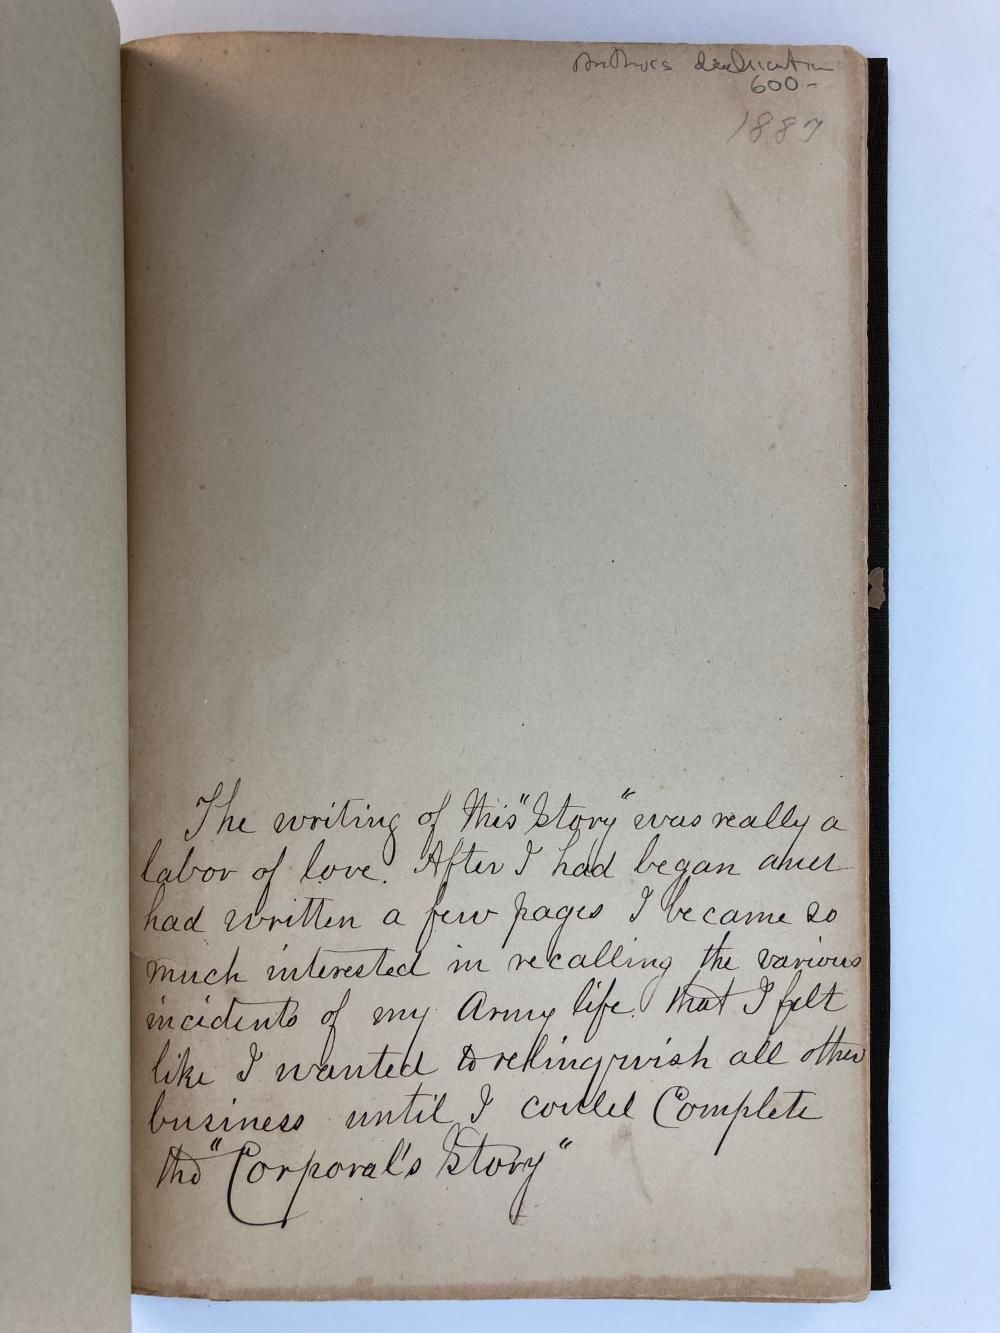 Authors dedication
600-
1887
The writing of this "Story" was really a
labor of love. After I had began and
had written a few pages I became so
much interested in recalling the various
incidents of my Army life. that I felt
like I wanted to relingwish all other
business until I could Complete
the "Corporal's Story"